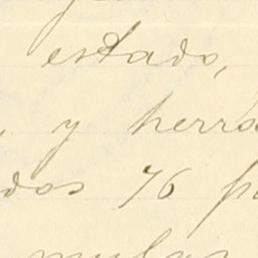 estado,
, y herra
dos 76 p
mular